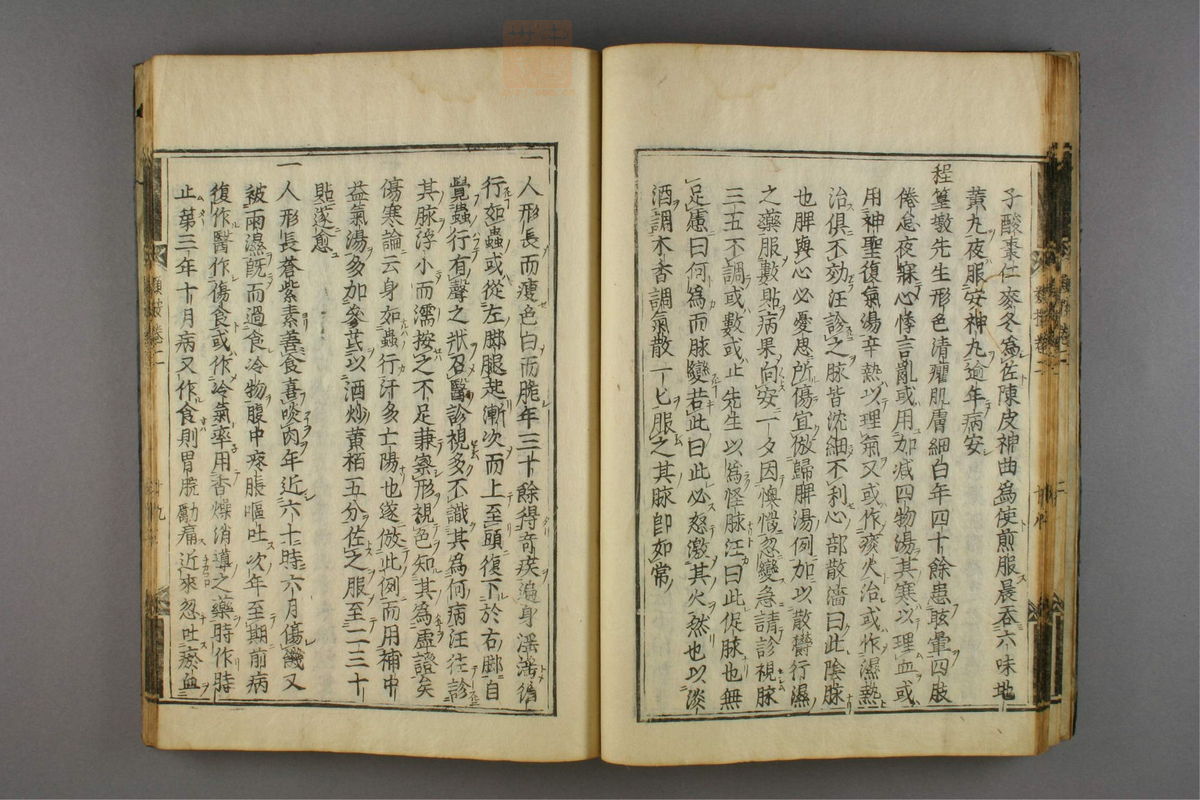 子酸棗仁麥冬爲佐陳皮神曲爲使煎服晨吞六味地
黄丸夜服安神丸逾年病安
程篁墩先生形色清癯肌膚細白年四十餘患眩暈四肢
倦怠夜寐心悸言亂或用加减四物湯其寒以理血或
用神聖復氣湯辛熱以理氣又或作痰火治或作濕熱
治俱不効汪診之脉皆沈細不利心部散濇曰此陰脉
也脾與心必憂思所傷宜倣歸脾湯例加以散欝行濕
之藥服數貼病果向安一夕因懊憹忽變急請診視脉
三五不調或數或止先生以爲怪脉汪曰此促脉也無
足慮曰何爲而脉變若此曰此必怒激其火然也以淡
酒調木香調氣散一匕服之其脉即如常
一人形長而瘦色白而脆年三十餘得奇疾遍身淫淫循
行如蟲或從左脚腿起漸次而上至頭復下於右脚自
覺蟲行有聲之狀召醫診視多不識其爲何病汪往診
其脉浮小而濡按之不足兼察形視色知其爲虛證矣
傷寒論云身如蟲行汗多亡陽也遂倣此例而用補中
益氣湯多加參芪以酒炒黄栢五分佐之服至二三十
貼遂愈
一人形長蒼紫素善食喜啖肉年近六十時六月傷饑又
被雨濕既而過食冷物腹中疼脹嘔吐次年至期前病
復作醫作傷食或作冷氣率用香燥消導之藥時作時
止第三年十月病又作食則胃脘勵痛近來忽吐瘀血
類按卷二
十九